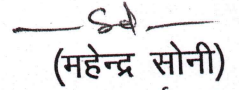 Sd
(महेन्द्र सोनी)